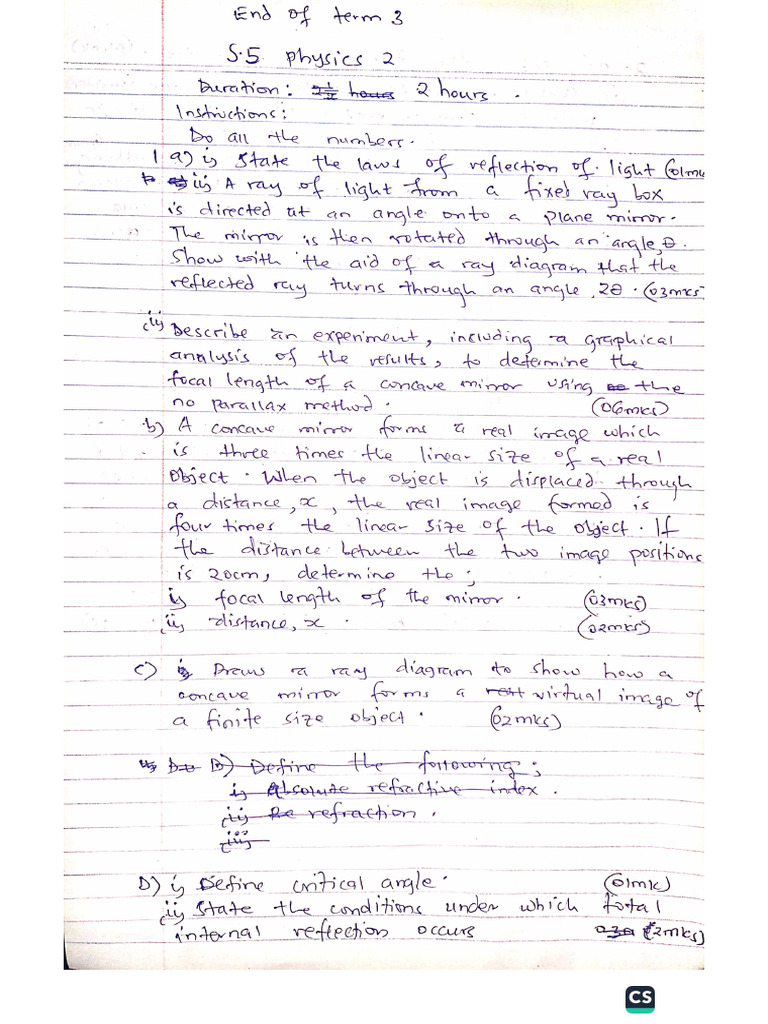 End of term 3
S.5 physics 2
Duration: 2½ hours 2 hours.
Instructions:
Do all the numbers.
1 a) i) State the laws of reflection of light (01mk
ii) A ray of light from a fixed ray box
is directed at an angle onto a plane mirror.
The mirror is then rotated through an angle, θ.
Show with the aid of a ray diagram that the
reflected ray turns through an angle, 2θ. (03mks
iii) Describe an experiment, including a graphical
analysis of the results, to determine the
focal length of a concave mirror using the
no parallax method. (06mks)
b) A concave mirror forms a real image which
is three times the linear size of a real
object. When the object is displaced through
a distance, x, the real image formed is
four times the linear size of the object. If
the distance between the two image positions
is 20cm, determine the;
i) focal length of the mirror. (03mks)
ii) distance, x. (02mks)
c) i) Draw a ray diagram to show how a
concave mirror forms a virtual image of
a finite size object. (02mks)
D) Define the following;
i) Absolute refractive index.
ii) Re refraction.
iii)
D) i) Define critical angle. (01mk)
ii) State the conditions under which total
internal reflection occurs (2mks)
CS